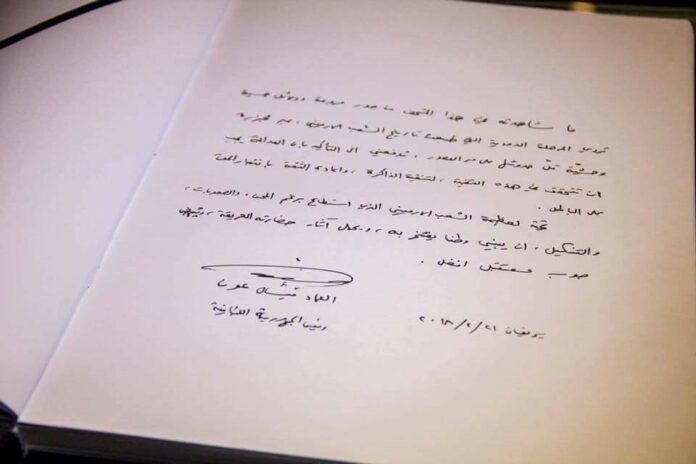 ما شاهدته في هذا المتحف من صور مروعة ووثائق حسية
تروي المرحلة الدموية التي طبعت تاريخ الشعب الارمني، عبر مجزرة
وحشية قل مثيل من مر العصور، تدفعني الى التأكيد بان العدالة يجب
ان تتحقق في هذه القضية، لتنقية الذاكرة، واعادة الثقة بانتصار الحق
على الباطل.
تحية لعظمة الشعب الارمني الذي استطاع برغم المحن، والصعوبات،
والتنكيل، ان يبني وطنا يفتخر به، ويحمل آثار حضارته العريقة،
صوب مستقبل افضل.
العماد ميشال عون
رئيس الجمهورية اللبنانية
يريفان ٢١/٢/٢٠١٨